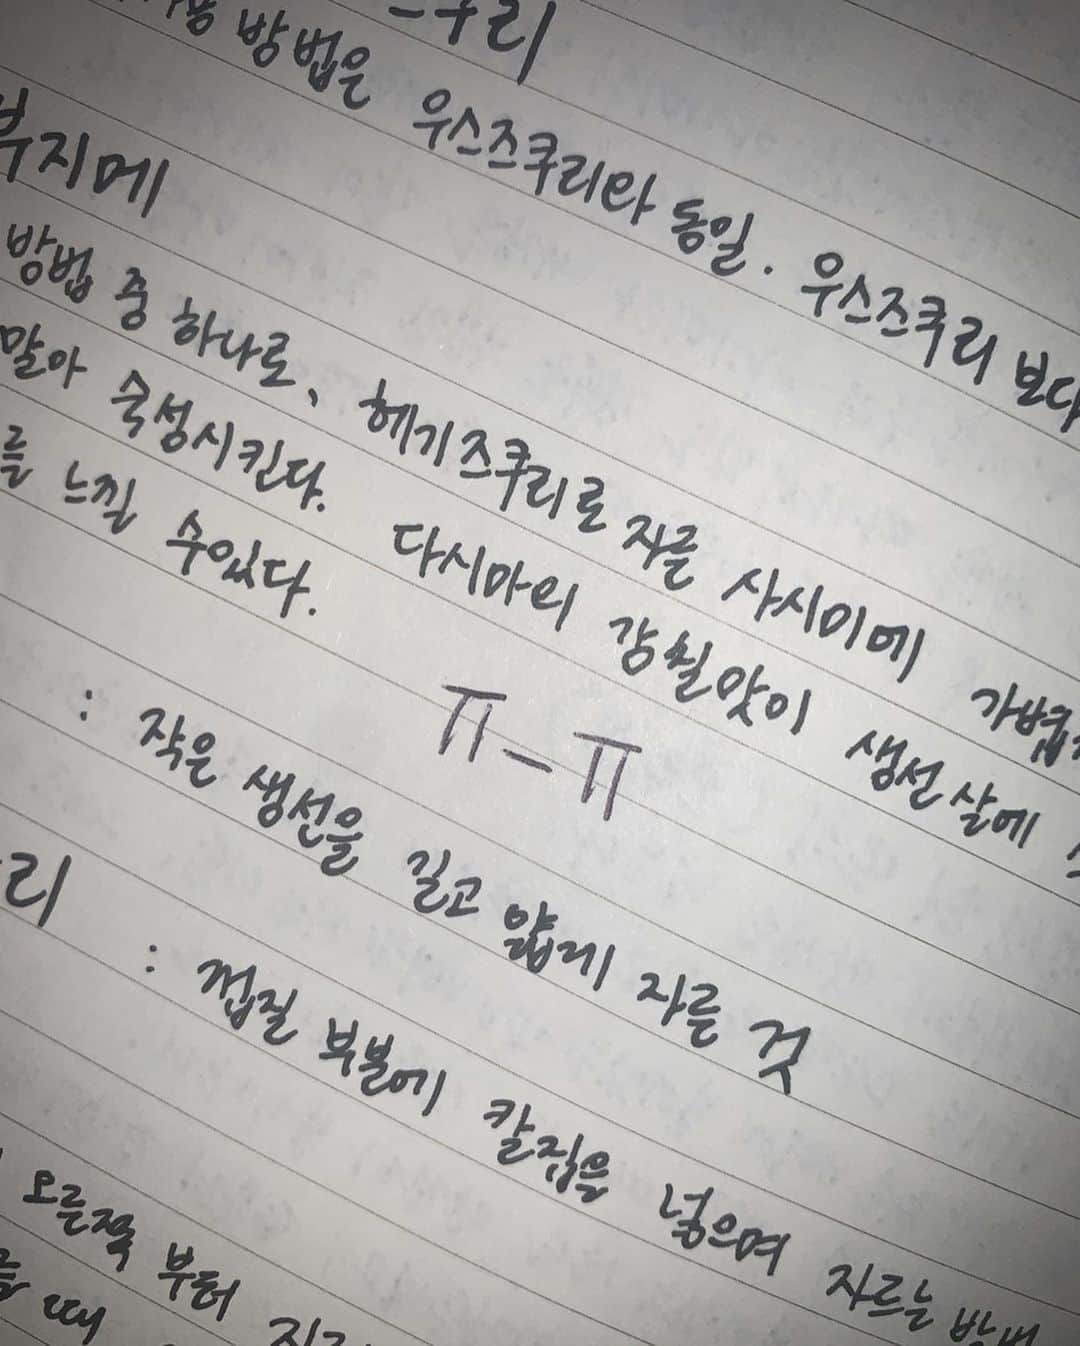 방법은 우스즈쿠리와 동일. 우스즈쿠리 보다
부지메
방법 중 하나로, 헤기즈쿠리로 자른 사시미에 가볍
말아 숙성시킨다. 다시마의 감칠맛이 생선살에
를 느낄 수있다.
ㅠ-ㅠ
: 작은 생선을 길고 얇게 자른 것
리 : 껍질 부분에 칼집을 넣으며 자르는 방법
오른쪽 부터
때